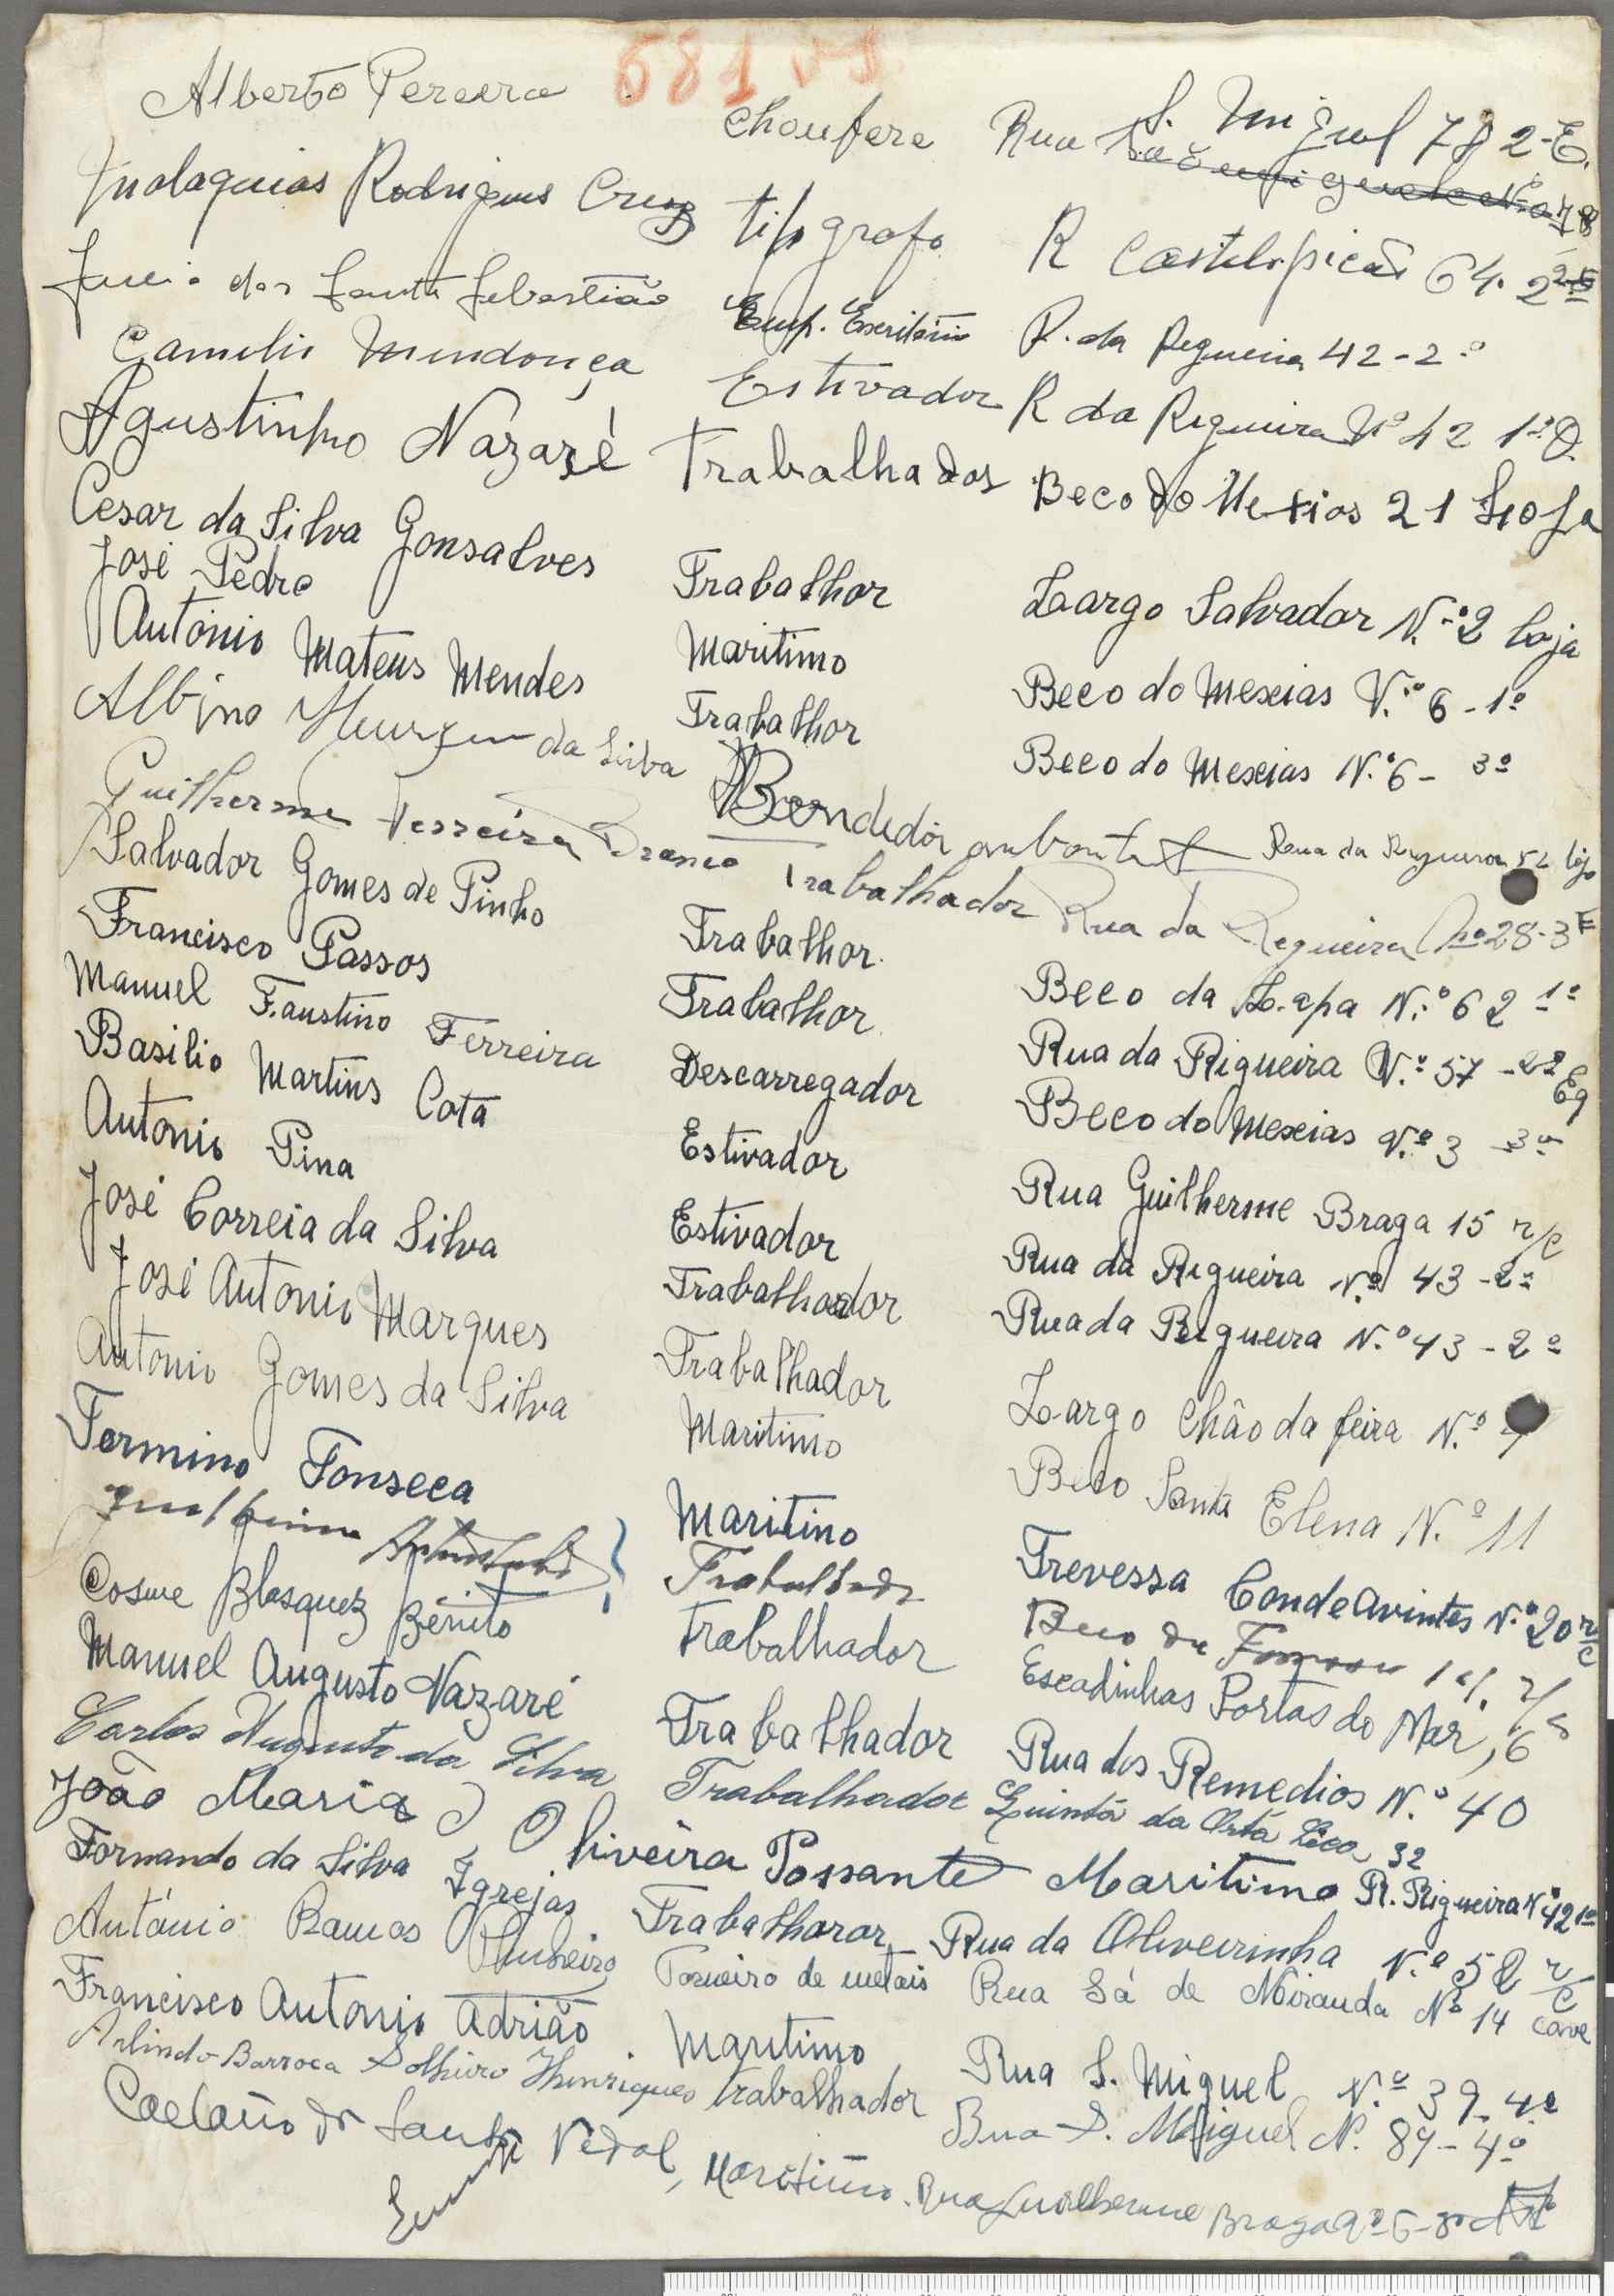 681
Alberto Pereira choufere Rua S. Miguel 78 2-E.
Malaquias Rodrigues Cruz tipografo R Castelo picão 64. 2º E
dos Santos Sebastião Emp. Escritório R. da Regueira 42-2º
Camilo Mendonça Estivador R da Rigueira Nº 42 1º D.
Agustinho Nazaré Trabalhador Beco do Mexias 21 Loja
Cesar da Silva Gonsalves Trabalhor Largo Salvador N.º 2 loja
José Pedro Maritimo Beco do Mexias N.º 6-1º
António Mateus Mendes Trabalhor Beco do Mexias N.º 6- 3º
Albino da Silva Bendedór Rua da Regueira 52 loja
Guilherme Ferreira Branco Trabalhador Rua da Regueira nº 28-3 E
Salvador Gomes de Pinho Trabalhor Beco da Lapa N.º 62 1º
Francisco Passos Trabalhor Rua da Rigueira N.º 57 -2º Eq
Manuel Faustino Ferreira Descarregador Beco do Mexias N.º 3 -3º
Basilio Martins Cota Estivador Rua Guilherme Braga 15 r/c
Antonio Pina Estivador Rua da Rigueira N.º 43-2º
José Correia da Silva Trabalhador Rua da Rigueira N.º 43-2º
José Antonio Marques Trabalhador Largo Chão da feira N.º
Antonio Gomes da Silva Maritimo Beco Santa Elena N.º 11
Fermino Fonseca Maritino Trevessa Conde Avintes N.º 20 r/c
Trabalhador Beco do r/c
Cosme Blasquez Benito Trabalhador Escadinhas Portas do Mar, 6
Manuel Augusto Nazaré Trabalhador Rua dos Remedios N.º 40
Carlos Augusto da Silva Trabalhador Quinta da Orta Seca 32
João Maria Oliveira Possante Maritimo R. Rigueira Nº 42 1º
Fernando da Silva Igrejas Trabalharor Rua da Oliveirinha N.º 52 r/c
António Ramos Pinheiro Torneiro de metais Rua Sá de Miranda Nº 14 cave
Francisco Antonio Adrião Maritimo Rua S. Miguel N.º 39-4º
Arlindo Barroca Solheiro Henriques trabalhador Rua S. Miguel N. 89-4º
Caetano dos Santos Vidal, Maritimo. Rua Guilherme Braga